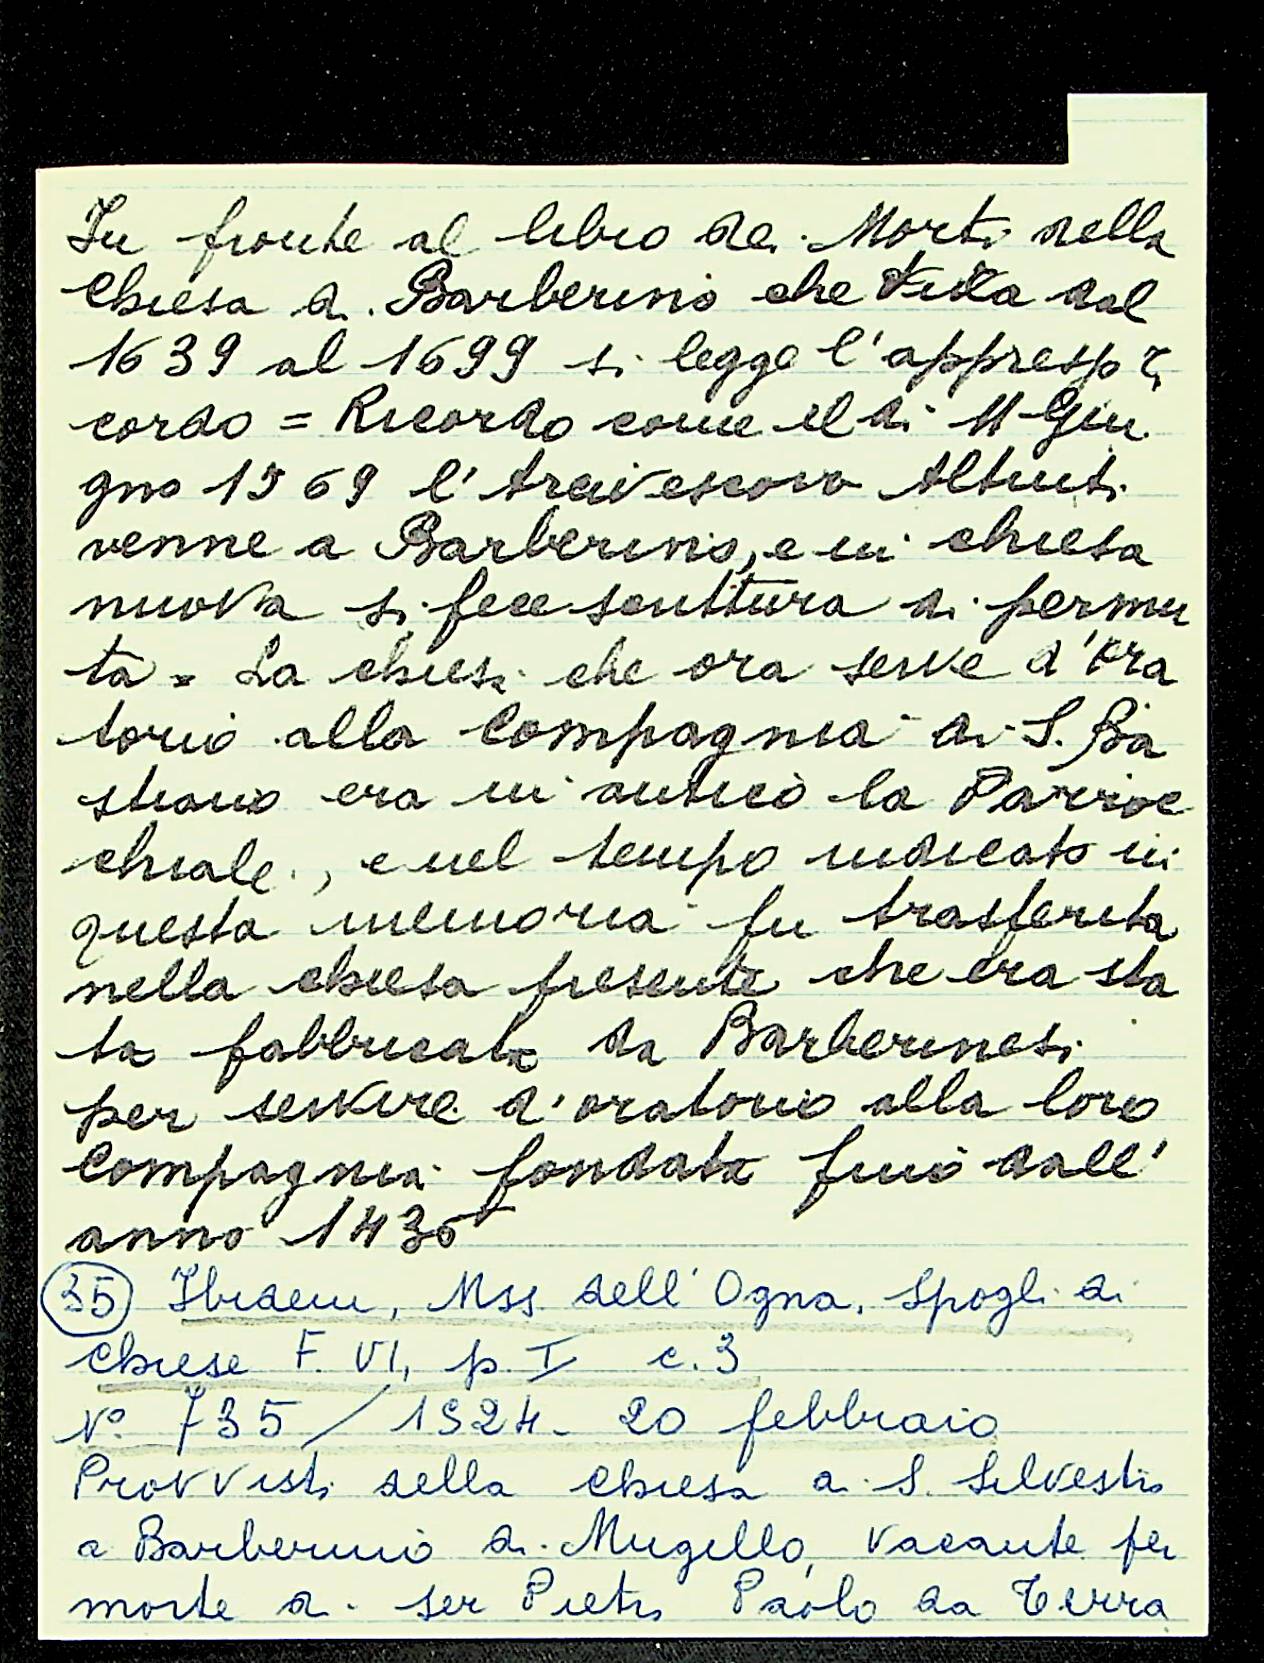 In fronte al libro dei Morti della
Chiesa di Barberino che va dal
1639 al 1699 si legge l'appresso Ri
cordo = Ricordo come il dì 11 Giu
gno 1569 l'Arcivescovo Altuiti
venne a Barberino, e in chiesa
nuova si fece scrittura di permu
ta = La chiesa che ora serve d'Ora
torio alla Compagnia di S. Ba
stiano era in antico la Parroc
chiale, e nel tempo indicato in
questa memoria fu trasferita
nella chiesa presente che era sta
ta fabbricata da Barberinesi
per servire d'oratorio alla loro
Compagnia fondata fino dall'
anno 1436
35 Ibidem, Mss dell'Ogna, Spogli di
Chiese F. VI, p. I c. 3
N° 735 / 1524 20 febbraio
Provvisti della Chiesa di S. Silvestro
a Barberino di Mugello, vacante per
morte di ser Pietro Paolo da Terra